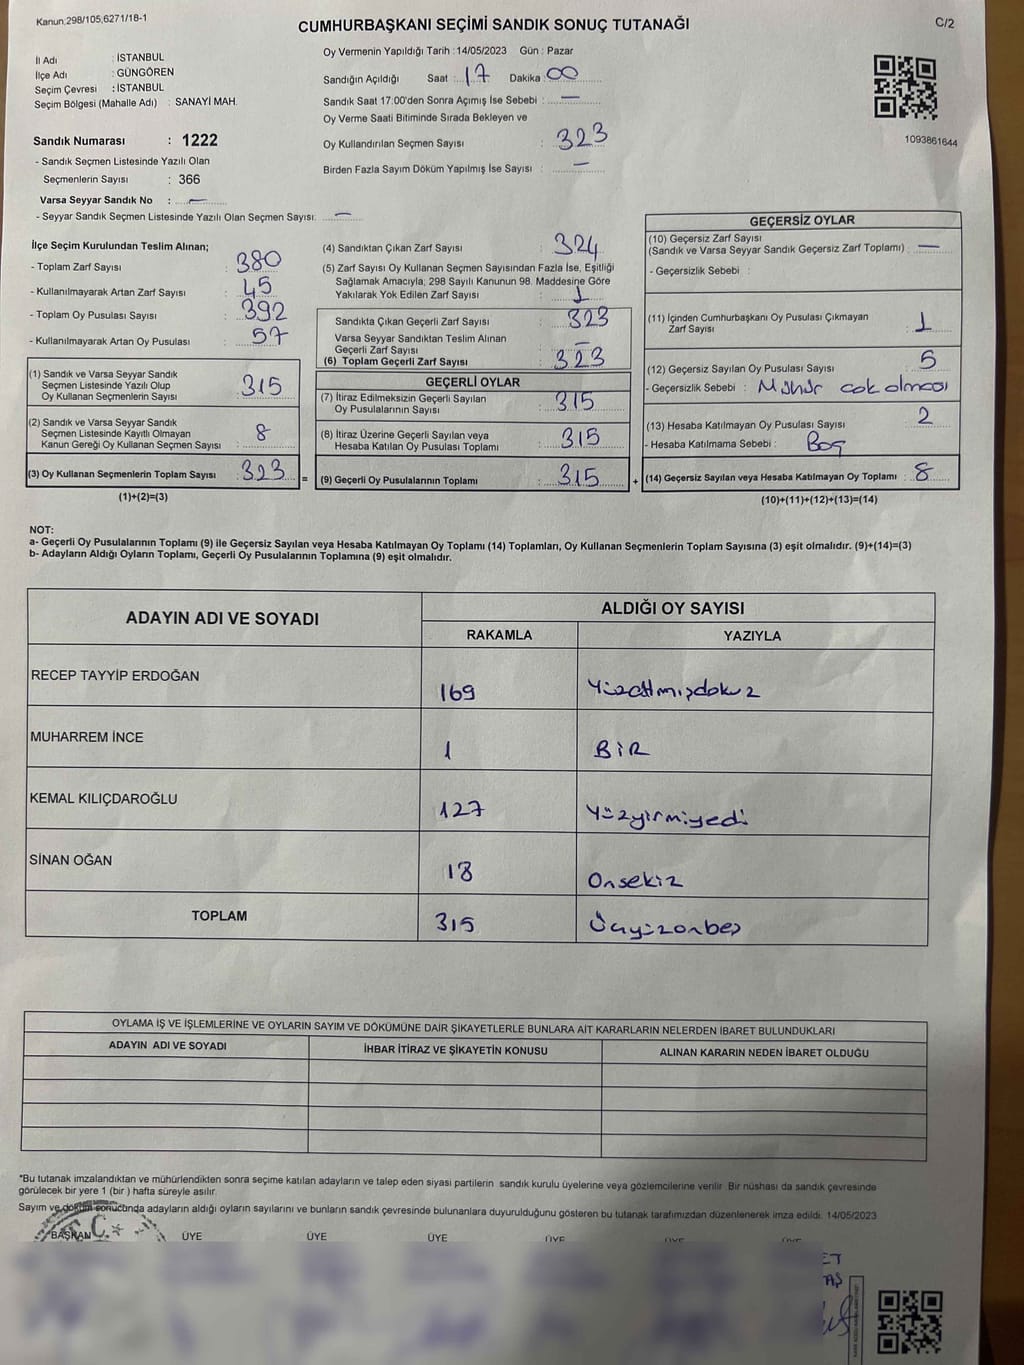 Kanun:298/105;6271/18-1
CUMHURBAŞKANI SEÇİMİ SANDIK SONUÇ TUTANAĞI
C/2
İl Adı : İSTANBUL
İlçe Adı : GÜNGÖREN
Seçim Çevresi : İSTANBUL
Seçim Bölgesi (Mahalle Adı) : SANAYİ MAH.
Oy Vermenin Yapıldığı Tarih :14/05/2023 Gün : Pazar
Sandığın Açıldığı Saat : 17 Dakika : 00
Sandık Saat 17:00'den Sonra Açımış İse Sebebi : —
Oy Verme Saati Bitiminde Sırada Bekleyen ve
Oy Kullandırılan Seçmen Sayısı : 323
Birden Fazla Sayım Döküm Yapılmış İse Sayısı : —
1093861644
Sandık Numarası : 1222
- Sandık Seçmen Listesinde Yazılı Olan
Seçmenlerin Sayısı : 366
Varsa Seyyar Sandık No : —
- Seyyar Sandık Seçmen Listesinde Yazılı Olan Seçmen Sayısı: —
İlçe Seçim Kurulundan Teslim Alınan;
- Toplam Zarf Sayısı : 380
- Kullanılmayarak Artan Zarf Sayısı : 45
- Toplam Oy Pusulası Sayısı : 392
- Kullanılmayarak Artan Oy Pusulası : 57
(1) Sandık ve Varsa Seyyar Sandık
Seçmen Listesinde Yazılı Olup
Oy Kullanan Seçmenlerin Sayısı : 315
(2) Sandık ve Varsa Seyyar Sandık
Seçmen Listesinde Kayıtlı Olmayan
Kanun Gereği Oy Kullanan Seçmen Sayısı : 8
(3) Oy Kullanan Seçmenlerin Toplam Sayısı : 323 =
(1)+(2)=(3)
(4) Sandıktan Çıkan Zarf Sayısı : 324
(5) Zarf Sayısı Oy Kullanan Seçmen Sayısından Fazla İse, Eşitliği
Sağlamak Amacıyla; 298 Sayılı Kanunun 98. Maddesine Göre
Yakılarak Yok Edilen Zarf Sayısı : 1
Sandıkta Çıkan Geçerli Zarf Sayısı : 323
Varsa Seyyar Sandıktan Teslim Alınan
Geçerli Zarf Sayısı : —
(6) Toplam Geçerli Zarf Sayısı : 323
GEÇERLİ OYLAR
(7) İtiraz Edilmeksizin Geçerli Sayılan
Oy Pusulalarının Sayısı : 315
(8) İtiraz Üzerine Geçerli Sayılan veya
Hesaba Katılan Oy Pusulası Toplamı : 315
(9) Geçerli Oy Pusulalarının Toplamı : 315 +
GEÇERSİZ OYLAR
(10) Geçersiz Zarf Sayısı
(Sandık ve Varsa Seyyar Sandık Geçersiz Zarf Toplamı) : —
- Geçersizlik Sebebi :
(11) İçinden Cumhurbaşkanı Oy Pusulası Çıkmayan
Zarf Sayısı : 1
(12) Geçersiz Sayılan Oy Pusulası Sayısı : 5
- Geçersizlik Sebebi : Mühür çok olması
(13) Hesaba Katılmayan Oy Pusulası Sayısı : 2
- Hesaba Katılmama Sebebi : Boş
(14) Geçersiz Sayılan veya Hesaba Katılmayan Oy Toplamı : 8
(10)+(11)+(12)+(13)=(14)
NOT:
a- Geçerli Oy Pusulalarının Toplamı (9) ile Geçersiz Sayılan veya Hesaba Katılmayan Oy Toplamı (14) Toplamları, Oy Kullanan Seçmenlerin Toplam Sayısına (3) eşit olmalıdır. (9)+(14)=(3)
b- Adayların Aldığı Oyların Toplamı, Geçerli Oy Pusulalarının Toplamına (9) eşit olmalıdır.
ADAYIN ADI VE SOYADI
ALDIĞI OY SAYISI
RAKAMLA YAZIYLA
RECEP TAYYİP ERDOĞAN 169 Yüzaltmışdokuz
MUHARREM İNCE 1 BİR
KEMAL KILIÇDAROĞLU 127 Yüzyirmiyedi
SİNAN OĞAN 18 Onsekiz
TOPLAM 315 Üçyüzonbeş
OYLAMA İŞ VE İŞLEMLERİNE VE OYLARIN SAYIM VE DÖKÜMÜNE DAİR ŞİKAYETLERLE BUNLARA AİT KARARLARIN NELERDEN İBARET BULUNDUKLARI
ADAYIN ADI VE SOYADI İHBAR İTİRAZ VE ŞİKAYETİN KONUSU ALINAN KARARIN NEDEN İBARET OLDUĞU
*Bu tutanak imzalandıktan ve mühürlendikten sonra seçime katılan adayların ve talep eden siyasi partilerin sandık kurulu üyelerine veya gözlemcilerine verilir. Bir nüshası da sandık çevresinde
görülecek bir yere 1 (bir ) hafta süreyle asılır.
Sayım ve döküm sonucunda adayların aldığı oyların sayılarını ve bunların sandık çevresinde bulunanlara duyurulduğunu gösteren bu tutanak tarafımızdan düzenlenerek imza edildi. 14/05/2023
BAŞKAN ÜYE ÜYE ÜYE ÜYE ÜYE ÜYE